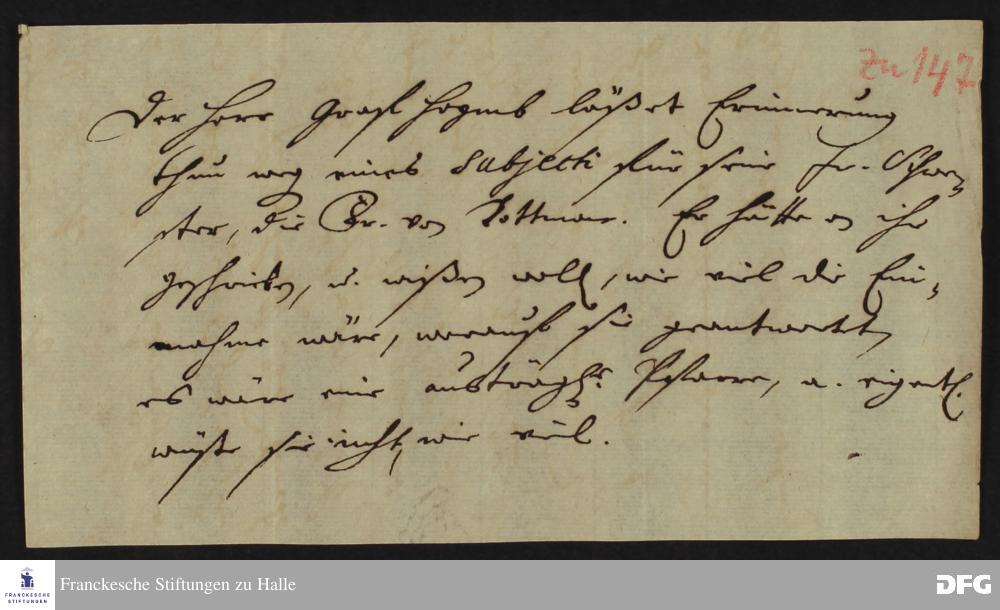 Zu 147
Der Herr Graf läßet Erinnerung
thun weg eines Subjecti für seine Fr. Schwe-
ster, die Fr. von Er hätte an ihr
geschrieben, u. wißen woll, wie viel die Ein-
nahme wäre, worauf sie geantwortet,
es wäre eine austrägl. Pfarre, a. eigentl.
wüste sie nicht, wie viel.
FRANCKESCHE
STIFTUNGEN
Franckesche Stiftungen zu Halle
DFG